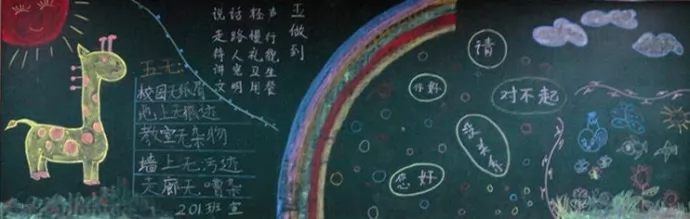 五无:
校园无纸屑
地上无痕迹
教室无杂物
墙上无污迹
走廊无喧哗
201班宣
五做到
说话轻声
走路慢行
待人礼貌
讲究卫生
文明用餐
请
你好
对不起
没关系
您好